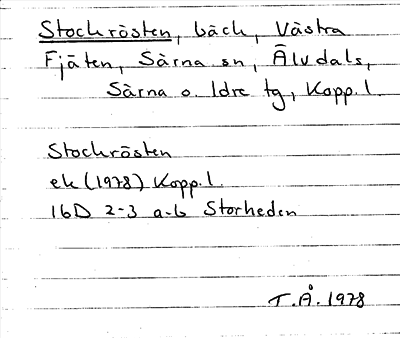 Stockrösten, bäck, Västra
Fjäten, Särna sn, Älvdals,
Särna o. Idre tg, Kopp. l.
Stockrösten
ek (1978) Kopp. l.
16D 2-3 a-b Storheden
T.Å. 1978